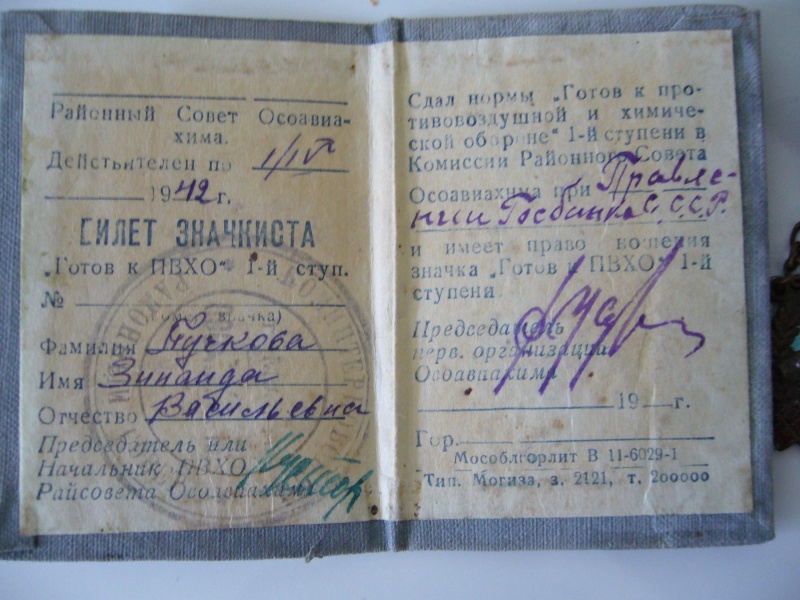 Районный Совет Осоавиа-
хима.
Действителен по 1/IV
1942 г.
БИЛЕТ ЗНАЧКИСТА
„Готов к ПВХО" 1-й ступ.
№
(номер значка)
Фамилия Пучкова
Имя Зинаида
Отчество Васильевна
Председатель или
Начальник ПВХО
Райсовета Осоавиахима
Сдал нормы „Готов к про-
тивовоздушной и химиче-
ской обороне" 1-й ступени в
Комиссии Районного Совета
Осоавиахима при Правле-
нии Госбанка С.С.С.Р.
и имеет право ношения
значка „Готов к ПВХО" 1-й
ступени.
Председатель
перв. организации
Осоавиахима
19 г.
Гор.
Мособлгорлит В 11-6029-1
Тип. Могиза, з. 2121, т. 200000